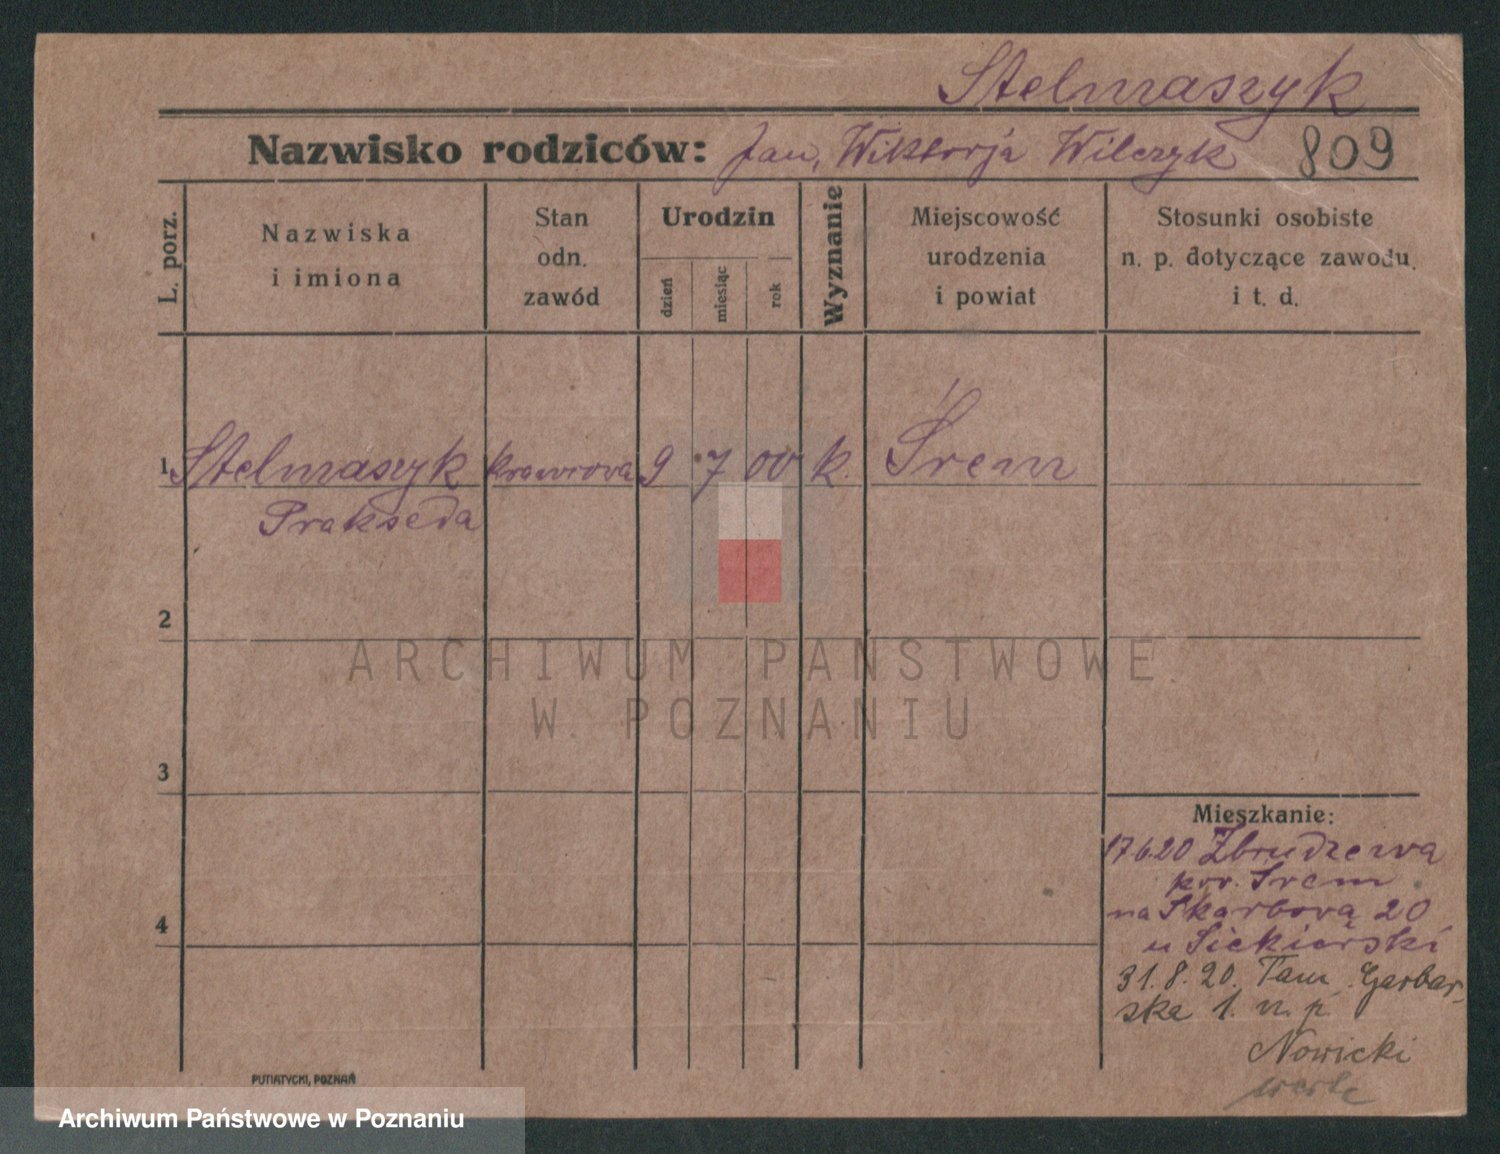 Stelmaszyk
Nazwisko rodziców: Jan, Wiktorja Wilczyk 809
L. porz.
Nazwiska
i imiona
Stan
odn.
zawód
Urodzin
dzień
miesiąc
rok
Wyznanie
Miejscowość
urodzenia
i powiat
Stosunki osobiste
n. p. dotyczące zawodu
i t. d.
1 Stelmaszyk krawcowa 9 7 00 k. Śrem
Prakseda
2
3
4
ARCHIWUM PAŃSTWOWE
W POZNANIU
Mieszkanie:
17.6.20 Zbrudzewa
pow. Śrem
na Skarbową 20
u Siekierski
31.8.20. Tam Garbar-
ska 1. n. p.
Nowicki
PUTIATYCKI, POZNAŃ
Archiwum Państwowe w Poznaniu